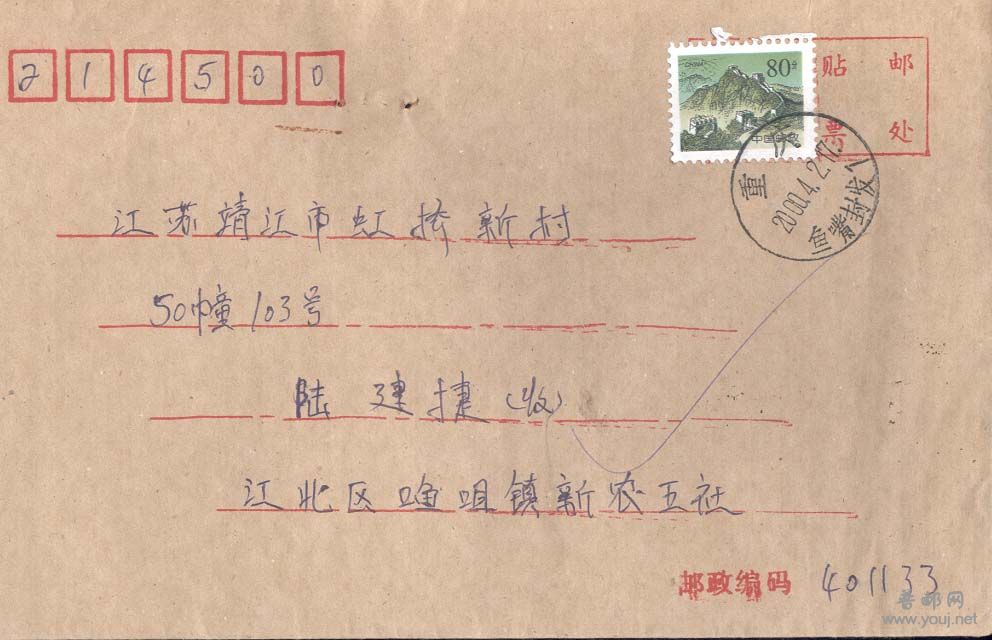 214500
CHINA
80分
中国邮政
贴 邮
票 处
重庆
2000.4.2.17
鱼嘴封发
江苏靖江市虹桥新村
50幢103号
陆建捷(收)
江北区鱼咀镇新农五社
邮政编码 401133
普邮网
www.youj.net